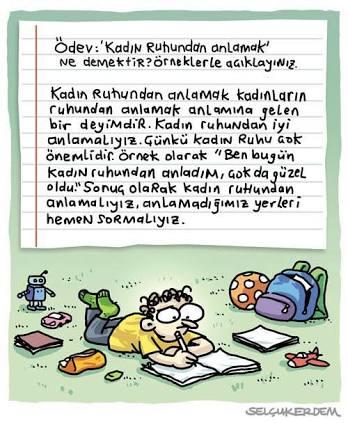 Ödev: 'Kadın Ruhundan anlamak'
ne demektir? Örneklerle açıklayınız.
Kadın Ruhundan anlamak kadınların
ruhundan anlamak anlamına gelen
bir deyimdir. Kadın ruhundan iyi
anlamalıyız. Çünkü kadın Ruhu çok
önemlidir. Örnek olarak "Ben bugün
kadın ruhundan anladım, çok da güzel
oldu." Sonuç olarak kadın ruhundan
anlamalıyız, anlamadığımız yerleri
hemen sormalıyız.
SELÇUK ERDEM